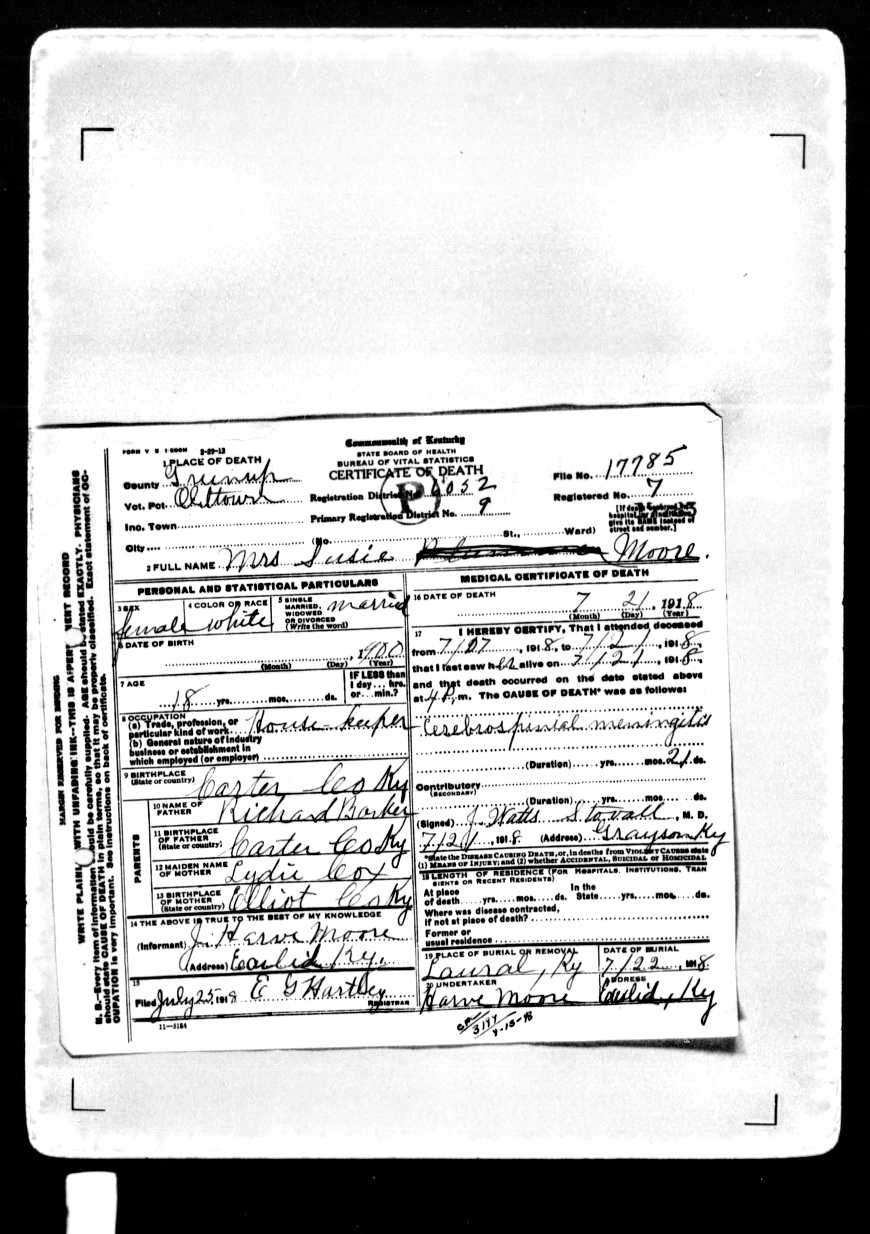 FORM V S 1 500M 3-29-13
Commonwealth of Kentucky
STATE BOARD OF HEALTH
BUREAU OF VITAL STATISTICS
CERTIFICATE OF DEATH
1 PLACE OF DEATH
County Greenup
Vot. Pct. Oldtown
Inc. Town
City (No. St., Ward)
Registration District No. 6052
Primary Registration District No. 9
P
File No. 17785
Registered No. 7
[If death occurred in a hospital or institution, give its NAME instead of street and number.]
2 FULL NAME Mrs Susie Moore.
PERSONAL AND STATISTICAL PARTICULARS
3 SEX female
4 COLOR OR RACE white
5 SINGLE MARRIED, WIDOWED OR DIVORCED (Write the word) married
6 DATE OF BIRTH , 1900
(Month) (Day) (Year)
7 AGE 18 yrs. mos. ds.
IF LESS than 1 day... hrs. or...min.?
8 OCCUPATION
(a) Trade, profession, or particular kind of work House-keeper
(b) General nature of industry business or establishment in which employed (or employer)
9 BIRTHPLACE (State or country) Carter Co Ky
PARENTS
10 NAME OF FATHER Richard Barker
11 BIRTHPLACE OF FATHER (State or country) Carter Co Ky
12 MAIDEN NAME OF MOTHER Lydie Cox
13 BIRTHPLACE OF MOTHER (State or country) Elliot Co Ky
14 THE ABOVE IS TRUE TO THE BEST OF MY KNOWLEDGE
(Informant) J. Harve Moore
(Address) Euclid Ky.
15
Filed July 25, 1918 E G Hartley REGISTRAR
11—3184
MEDICAL CERTIFICATE OF DEATH
16 DATE OF DEATH 7 21, 1918
(Month) (Day) (Year)
17 I HEREBY CERTIFY, That I attended deceased
from 7/07, 1918, to 7/21, 1918,
that I last saw her alive on 7/21, 1918,
and that death occurred on the date stated above
at 4 P.m. The CAUSE OF DEATH* was as follows:
Cerebrospinial meningitis
(Duration) yrs. mos. 21 ds.
Contributory (SECONDARY)
(Duration) yrs. mos. ds.
(Signed) J. Watts Stovall, M. D.
7/21, 1918 (Address) Grayson Ky
*State the DISEASE CAUSING DEATH, or, in deaths from VIOLENT CAUSES state
(1) MEANS OF INJURY; and (2) whether ACCIDENTAL, SUICIDAL or HOMICIDAL
18 LENGTH OF RESIDENCE (FOR HOSPITALS, INSTITUTIONS, TRAN
SIENTS OR RECENT RESIDENTS)
At place of death yrs. mos. ds. In the State yrs. mos. ds.
Where was disease contracted, if not at place of death?
Former or usual residence
19 PLACE OF BURIAL OR REMOVAL Laural, Ky
DATE OF BURIAL 7/22, 1918
20 UNDERTAKER Harve Moore
ADDRESS Euclid, Ky
3147
4-15-
MARGIN RESERVED FOR BINDING
WRITE PLAINLY WITH UNFADING INK—THIS IS A PERMANENT RECORD
N. B.—Every item of information should be carefully supplied. AGE should be stated EXACTLY. PHYSICIANS
should state CAUSE OF DEATH in plain terms, so that it may be properly classified. Exact statement of OC-
CUPATION is very important. See instructions on back of certificate.